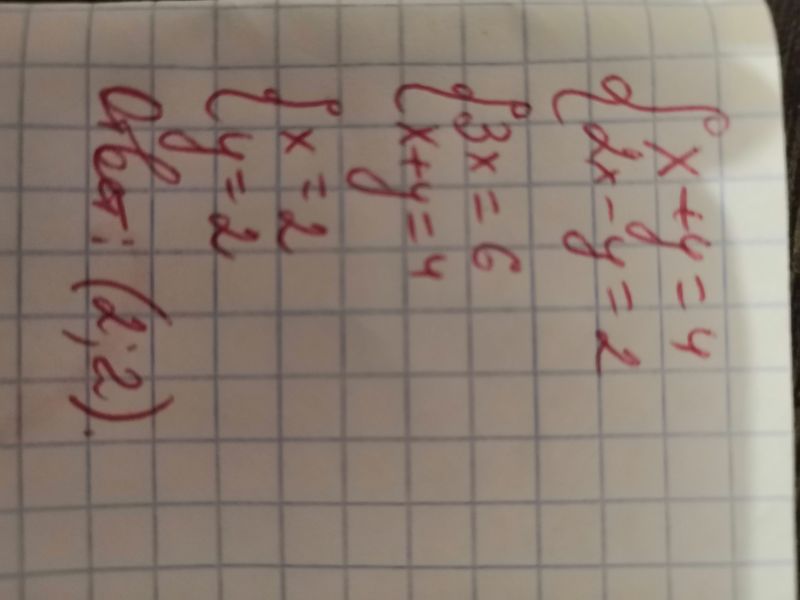 x + y = 4
2x - y = 2
3x = 6
x + y = 4
x = 2
y = 2
Ответ: (2; 2).